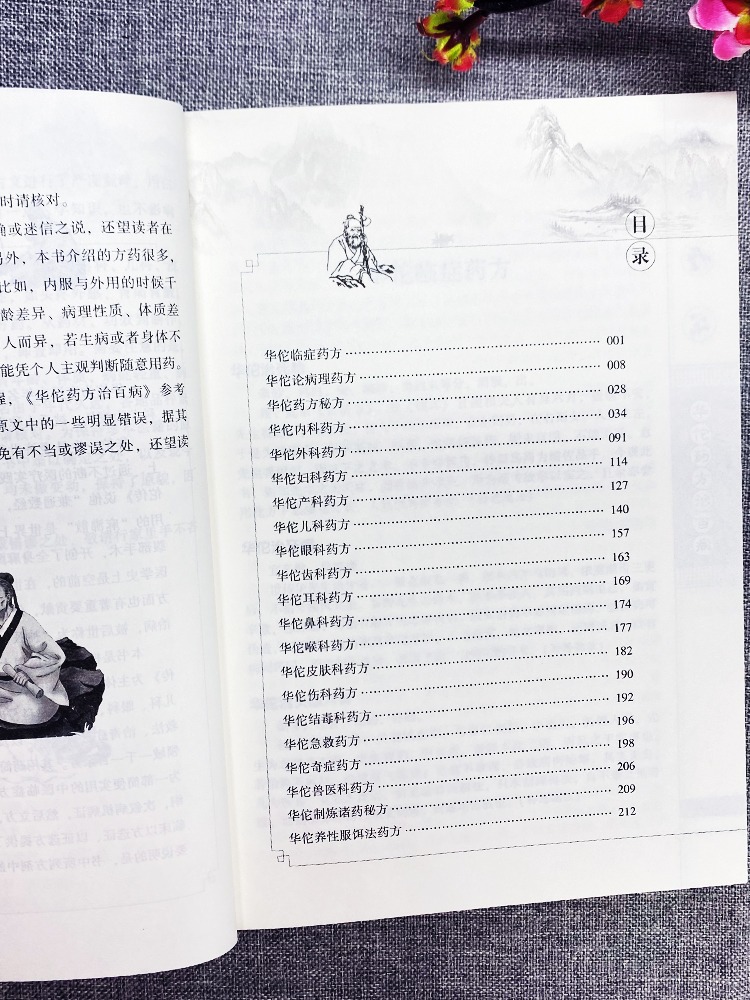 时请核对。
或迷信之说，还望读者在
另外，本书介绍的方药很多，
比如，内服与外用的时候千
龄差异、病理性质、体质差
人而异，若生病或者身体不
能凭个人主观判断随意用药。
《华佗药方治百病》参考
原文中的一些明显错误，据其
免有不当或谬误之处，还望读
目
录
华佗临症药方 001
华佗论病理药方 008
华佗药方秘方 028
华佗内科药方 034
华佗外科药方 091
华佗妇科药方 114
华佗产科药方 127
华佗儿科药方 140
华佗眼科药方 157
华佗齿科药方 163
华佗耳科药方 169
华佗鼻科药方 174
华佗喉科药方 177
华佗皮肤科药方 182
华佗伤科药方 190
华佗结毒科药方 192
华佗急救药方 196
华佗奇症药方 198
华佗兽医科药方 206
华佗制炼诸药秘方 209
华佗养性服饵法药方 212